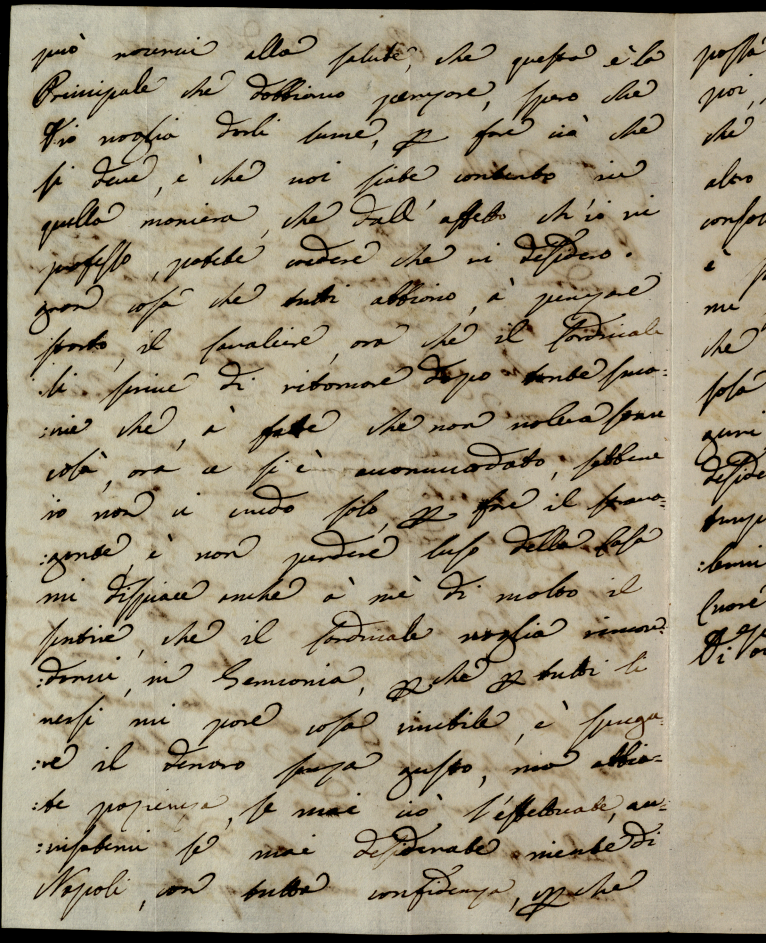 può nocervi alla salute, che questa è la
Principale che dobbiamo pensare, spero che
Dio voglia darli lume, p fare ciò che
si deve, è che voi siate contento in
quella maniera, che dall' affetto ch'io vi
professo, potete credere che vi desidero.
gran cosa che tutti abbiano, à pensare
storto, il Cavaliere, ora che il Cardinale
li scrive di ritornare dopo tante sma=
:nie che, à fatte che non voleva stare
colà, ora ce si è accomodato, sebbene
io non ci credo solo, p fare il strava=
:gante, è non perdere luso della Casa
mi dispiace anche à mè di molto il
sentire, che il Cardinale voglia riman=
:darvi, in Germania, p che p tutti li
versi mi pare cosa inutile, è spega=
:re il denaro senza gusto, ma abbia=
:te pazienza, se mai ciò s'effettuate, av=
:visatemi se mai desiderate niente di
Napoli, con tutta confidenza, p che
possa
poi,
che
altro
è
mi
che
sola
Cuore